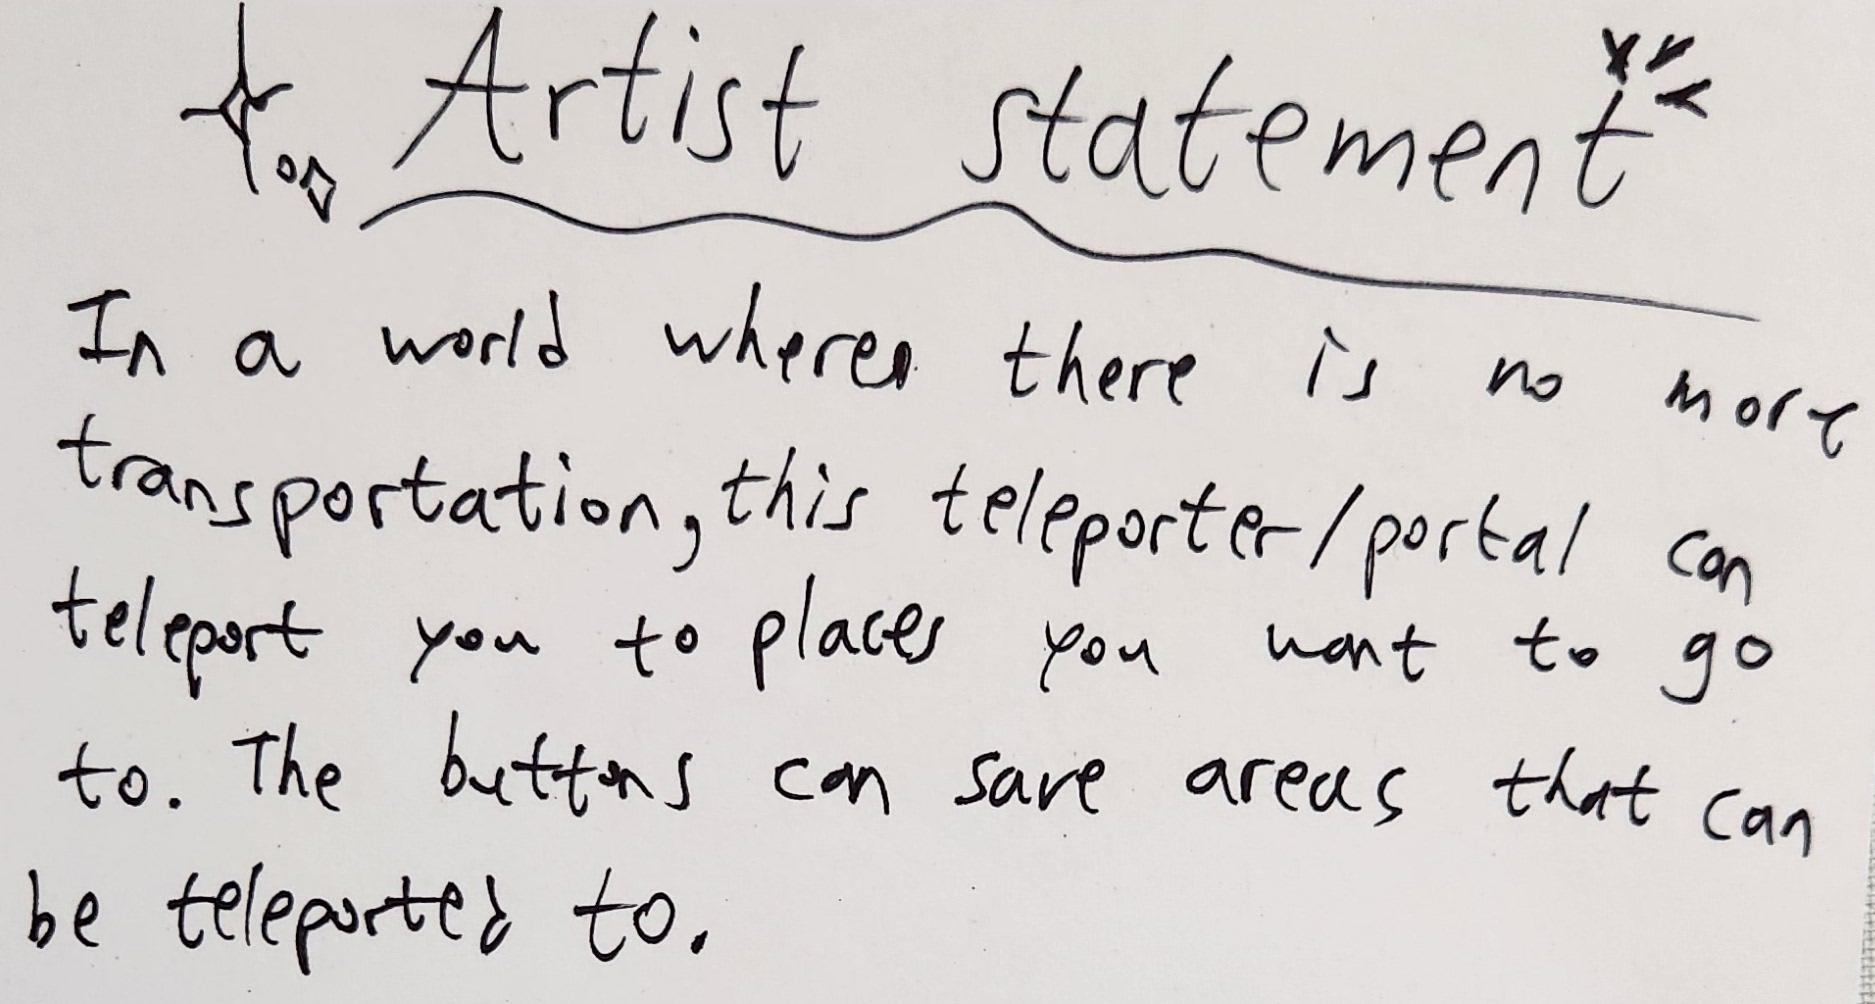 Artist statement
In a world where there is no more
transportation, this teleporter/portal can
teleport you to places you want to go
to. The buttons can save areas that can
be teleported to.